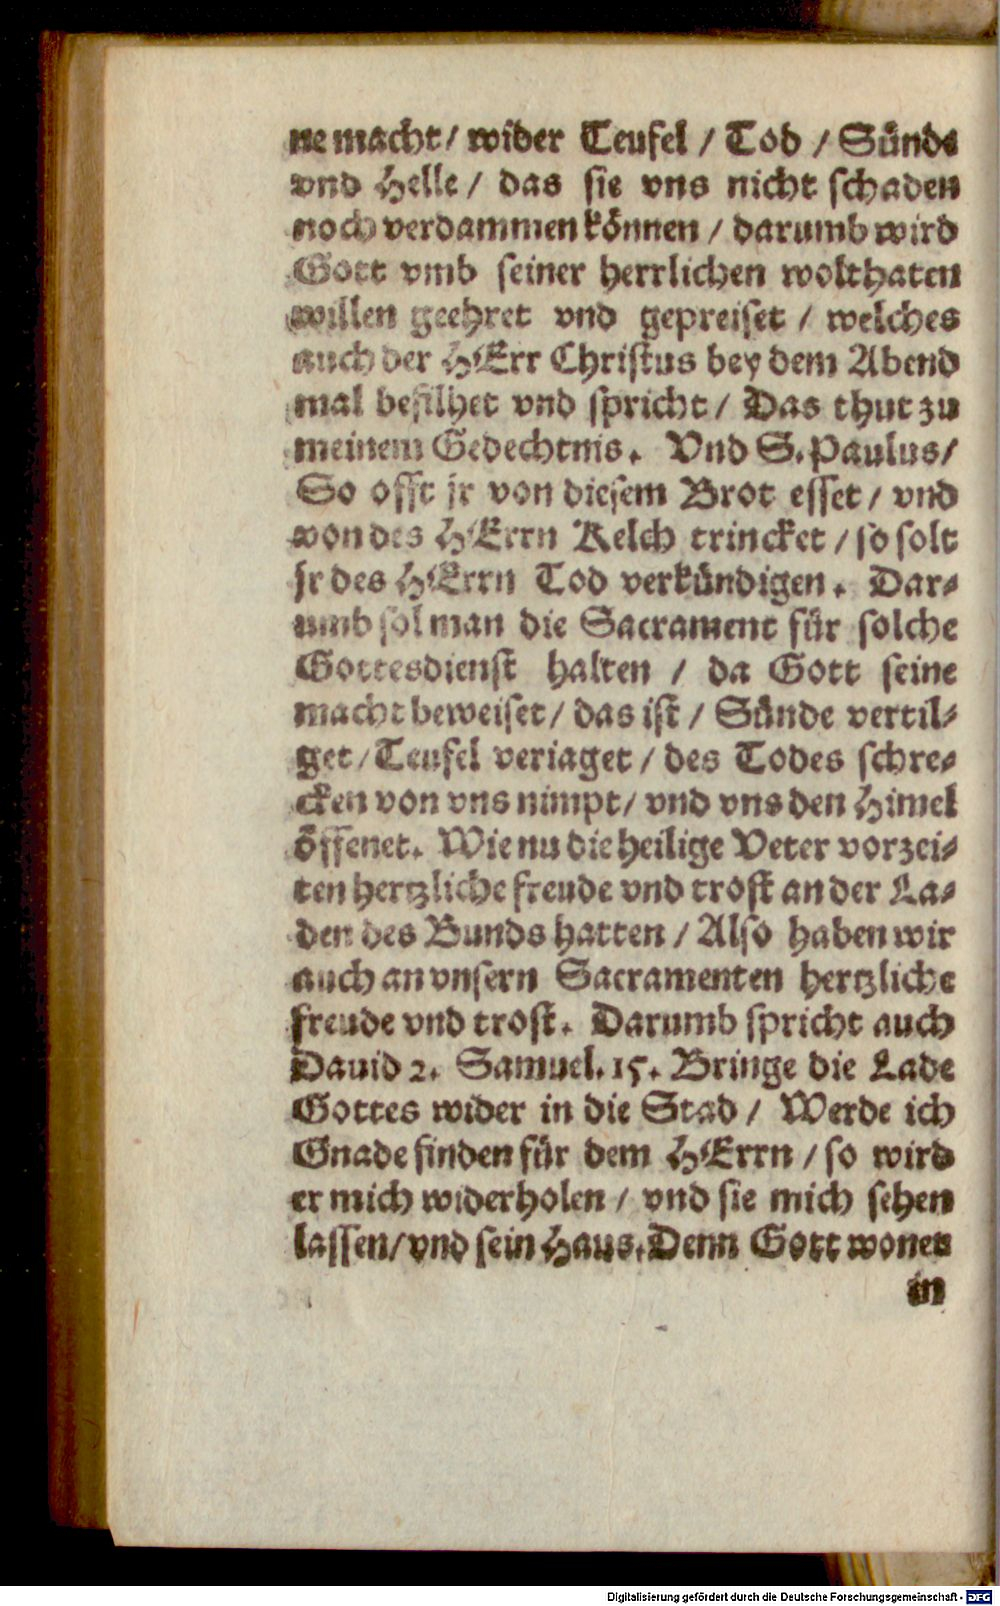 ne macht / wider Teufel / Tod / Sünde
vnd Helle / das sie vns nicht schaden
noch verdammen können / darumb wird
Gott vmb seiner herrlichen wolthaten
willen geehret vnd gepreiset / welches
auch der HErr Christus bey dem Abend
mal befilhet vnd spricht / Das thut zu
meinem Gedechtnis. Vnd S. Paulus /
So offt jr von diesem Brot esset / vnd
von des HErrn Kelch trincket / so solt
jr des HErrn Tod verkündigen. Dar-
umb sol man die Sacrament für solche
Gottesdienst halten / da Gott seine
macht beweiset / das ist / Sünde vertil-
get / Teufel veriaget / des Todes schre-
cken von vns nimpt / vnd vns den Himel
öffenet. Wie nu die heilige Veter vorzei-
ten hertzliche freude vnd trost an der La-
den des Bunds hatten / Also haben wir
auch an vnsern Sacramenten hertzliche
freude vnd trost. Darumb spricht auch
Dauid 2. Samuel. 15. Bringe die Lade
Gottes wider in die Stad / Werde ich
Gnade finden für dem HErrn / so wird
er mich widerholen / vnd sie mich sehen
lassen / vnd sein Haus. Denn Gott wonet
in
Digitalisierung gefördert durch die Deutsche Forschungsgemeinschaft - DFG